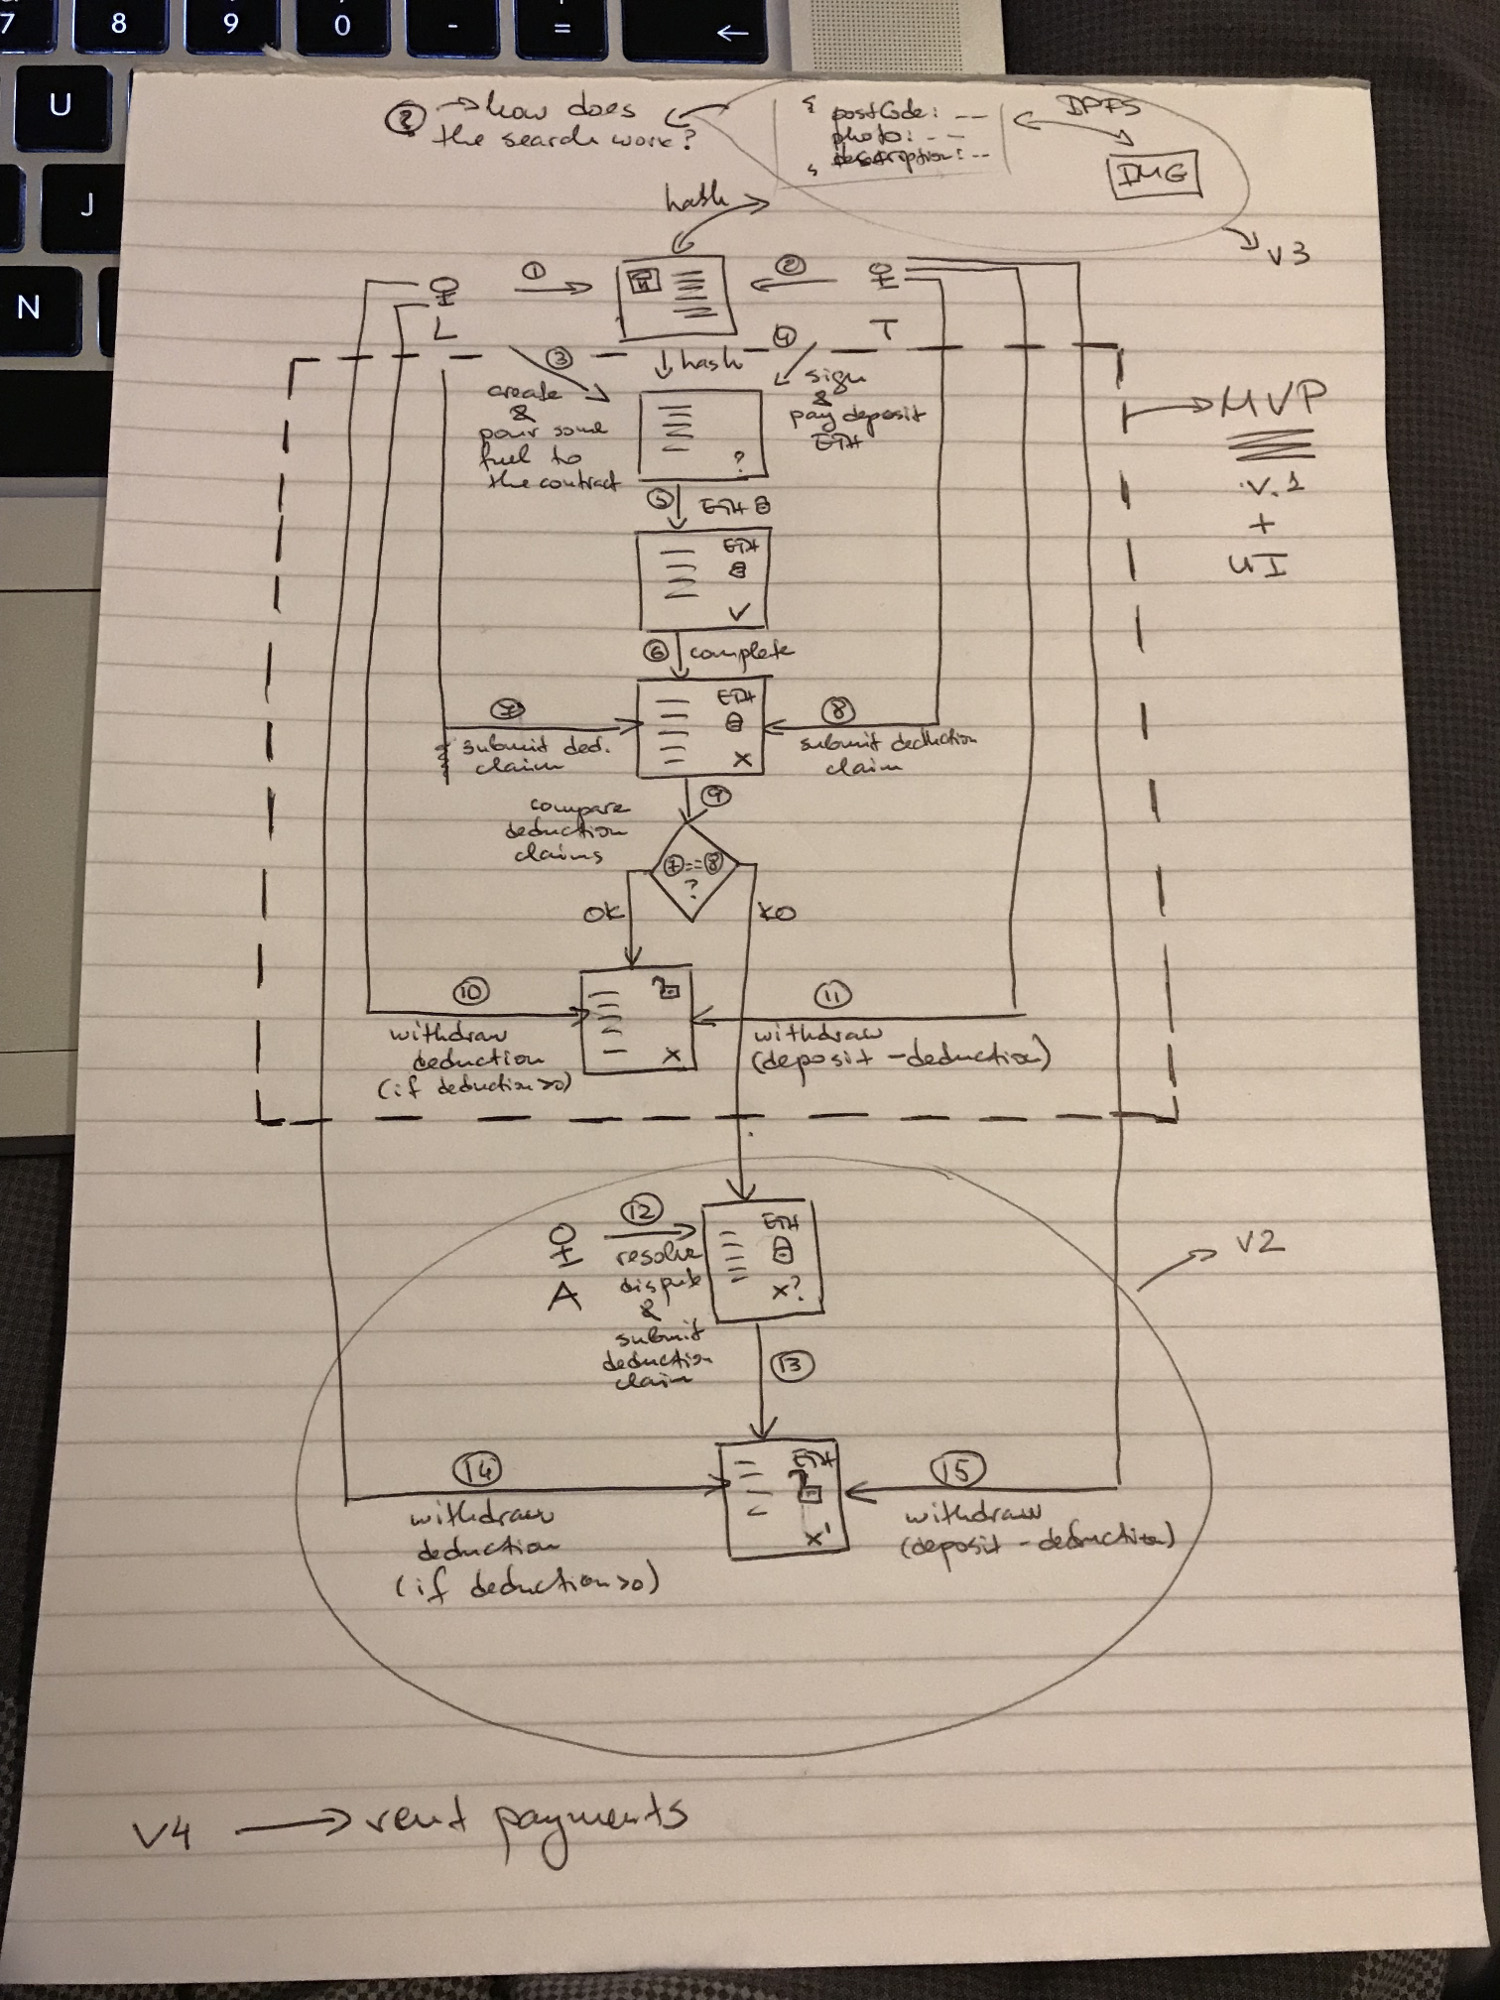 7 8 9 0 - = ←
U
J
N
? → how does
the search work?
{ postCode: --
photo: --
description: --
}
IPFS
IMG
hash
V3
1
2
L
T
3
4
hash
create
&
pour some
fuel to
the contract
sign
&
pay deposit
ETH
?
MVP
v.1
+
UI
5 ETH
ETH
✓
6 complete
ETH
X
7
submit ded.
claim
8
submit deduction
claim
9
compare
deduction
claims
7==8
?
OK
KO
10
withdraw
deduction
(if deduction>0)
X
11
withdraw
(deposit - deduction)
12
A
resolve
dispute
&
submit
deduction
claim
ETH
X?
V2
13
14
withdraw
deduction
(if deduction>0)
ETH
X'
15
withdraw
(deposit - deduction)
V4 → rent payments